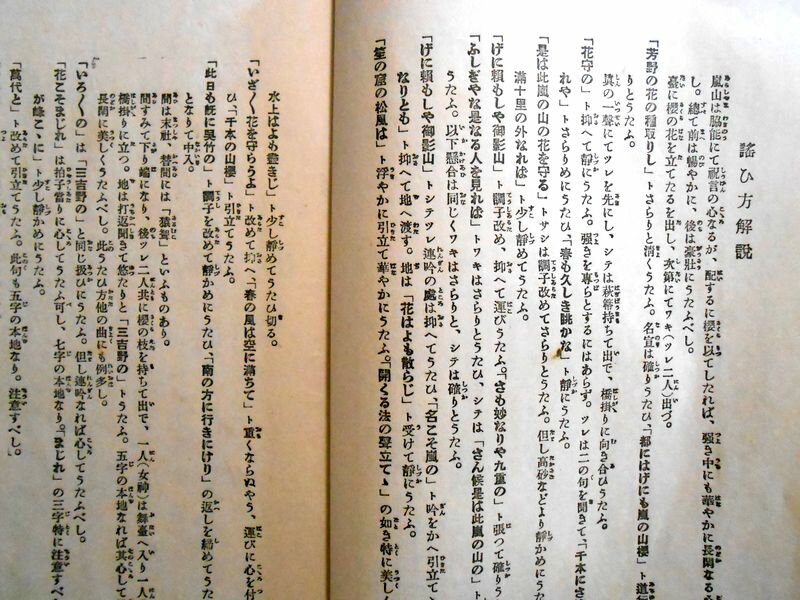 謠ひ方解説
嵐山は脇能にて祝言の心なるが、配するに櫻を以てしたれば、强き中にも華やかに長閑なる
し。總て前は暢やかに、後は豪壯にうたふべし。
臺に櫻の花を立てたるを出し、次第にてワキ(ツレ二人)出づ。
「芳野の花の種取りし」トさらりと淸くうたふ。名宣は確りうたひ、「都にはげにも嵐の山櫻」ト道行
りとうたふ。
眞の一聲にてツレを先にし、シテ萩箒持ちて出で、橋掛りに向き合ひうたふ。
「花守の」ト抑へて靜にうたふ。强きを專らとするにはあらず。ツレは二の句を開きて、「千本にさ
れや」トさらりめにうたひ、「春も久しき眺かな」ト靜にうたふ。
「是は此嵐の山の花を守る」トサシは調子改めてさらりとうたふ。但し高砂などより靜かめにうた
滿十里の外なれば」ト少し靜めてうたふ。
「げに賴もしや御影山」ト調子改め、抑へて運びうたふ。「さも妙なりや九重の」ト張つて確りう
「ふしぎやな是なる人を見れば」トワキはさらりとうたひ、シテは「さん候是は此嵐の山の」ト
うたふ。以下懸合は同じくワキはさらりと、シテは確りとうたふ。
「げに賴もしや御影山」トシテツレ連吟の處は抑へてうたひ、「名こそ嵐の」ト吟をかへ引立て
なりとも」ト抑へて地へ渡す。地は「花はよも散らじ」ト受けて靜にうたふ。
「笙の窟の松風は」ト浮やかに引立て華やかにうたふ。「開くる法の聲立てゝ」の如き特に美しく
水上はよも盡きじ」ト少し靜めてうたひ切る。
「いざ〱花を守らうよ」ト改めて抑へ、「春の風は空に滿ちて」ト重くならぬやう、運びに心を付
ひ、「千本の山櫻」ト引立てうたふ。
「此日も既に呉竹の」ト調子を改めて靜かめにうたひ、「南の方に行きにけり」の返しを締めてうた
となりて中入。
間は末社、替間には「猿聟」といふものあり。
間すみて下り端になり、後ツレ二人共に櫻の枝を持ちて出で、一人(女神)は舞臺へ入り一人
橋掛りに立つ。地は打返聞きて悠たりと「三吉野の」トうたふ。五字の本地なれば其心して
長閑に美しくうたふべし。此うたひ方他の曲にも例多し。
「いろ〱の」は「三吉野の」と同じ扱ひにうたふ。但し連吟なれば心してうたふべし。
「花こそまじれ」は拍子當りに心してうたふ可し、七字の本地なり。「まじれ」の三字特に注意すべ
が峰こゝに」ト少し靜かめにうたふ。
「萬代と」ト改めて引立てうたふ。此句も五字の本地なり。注意すべし。